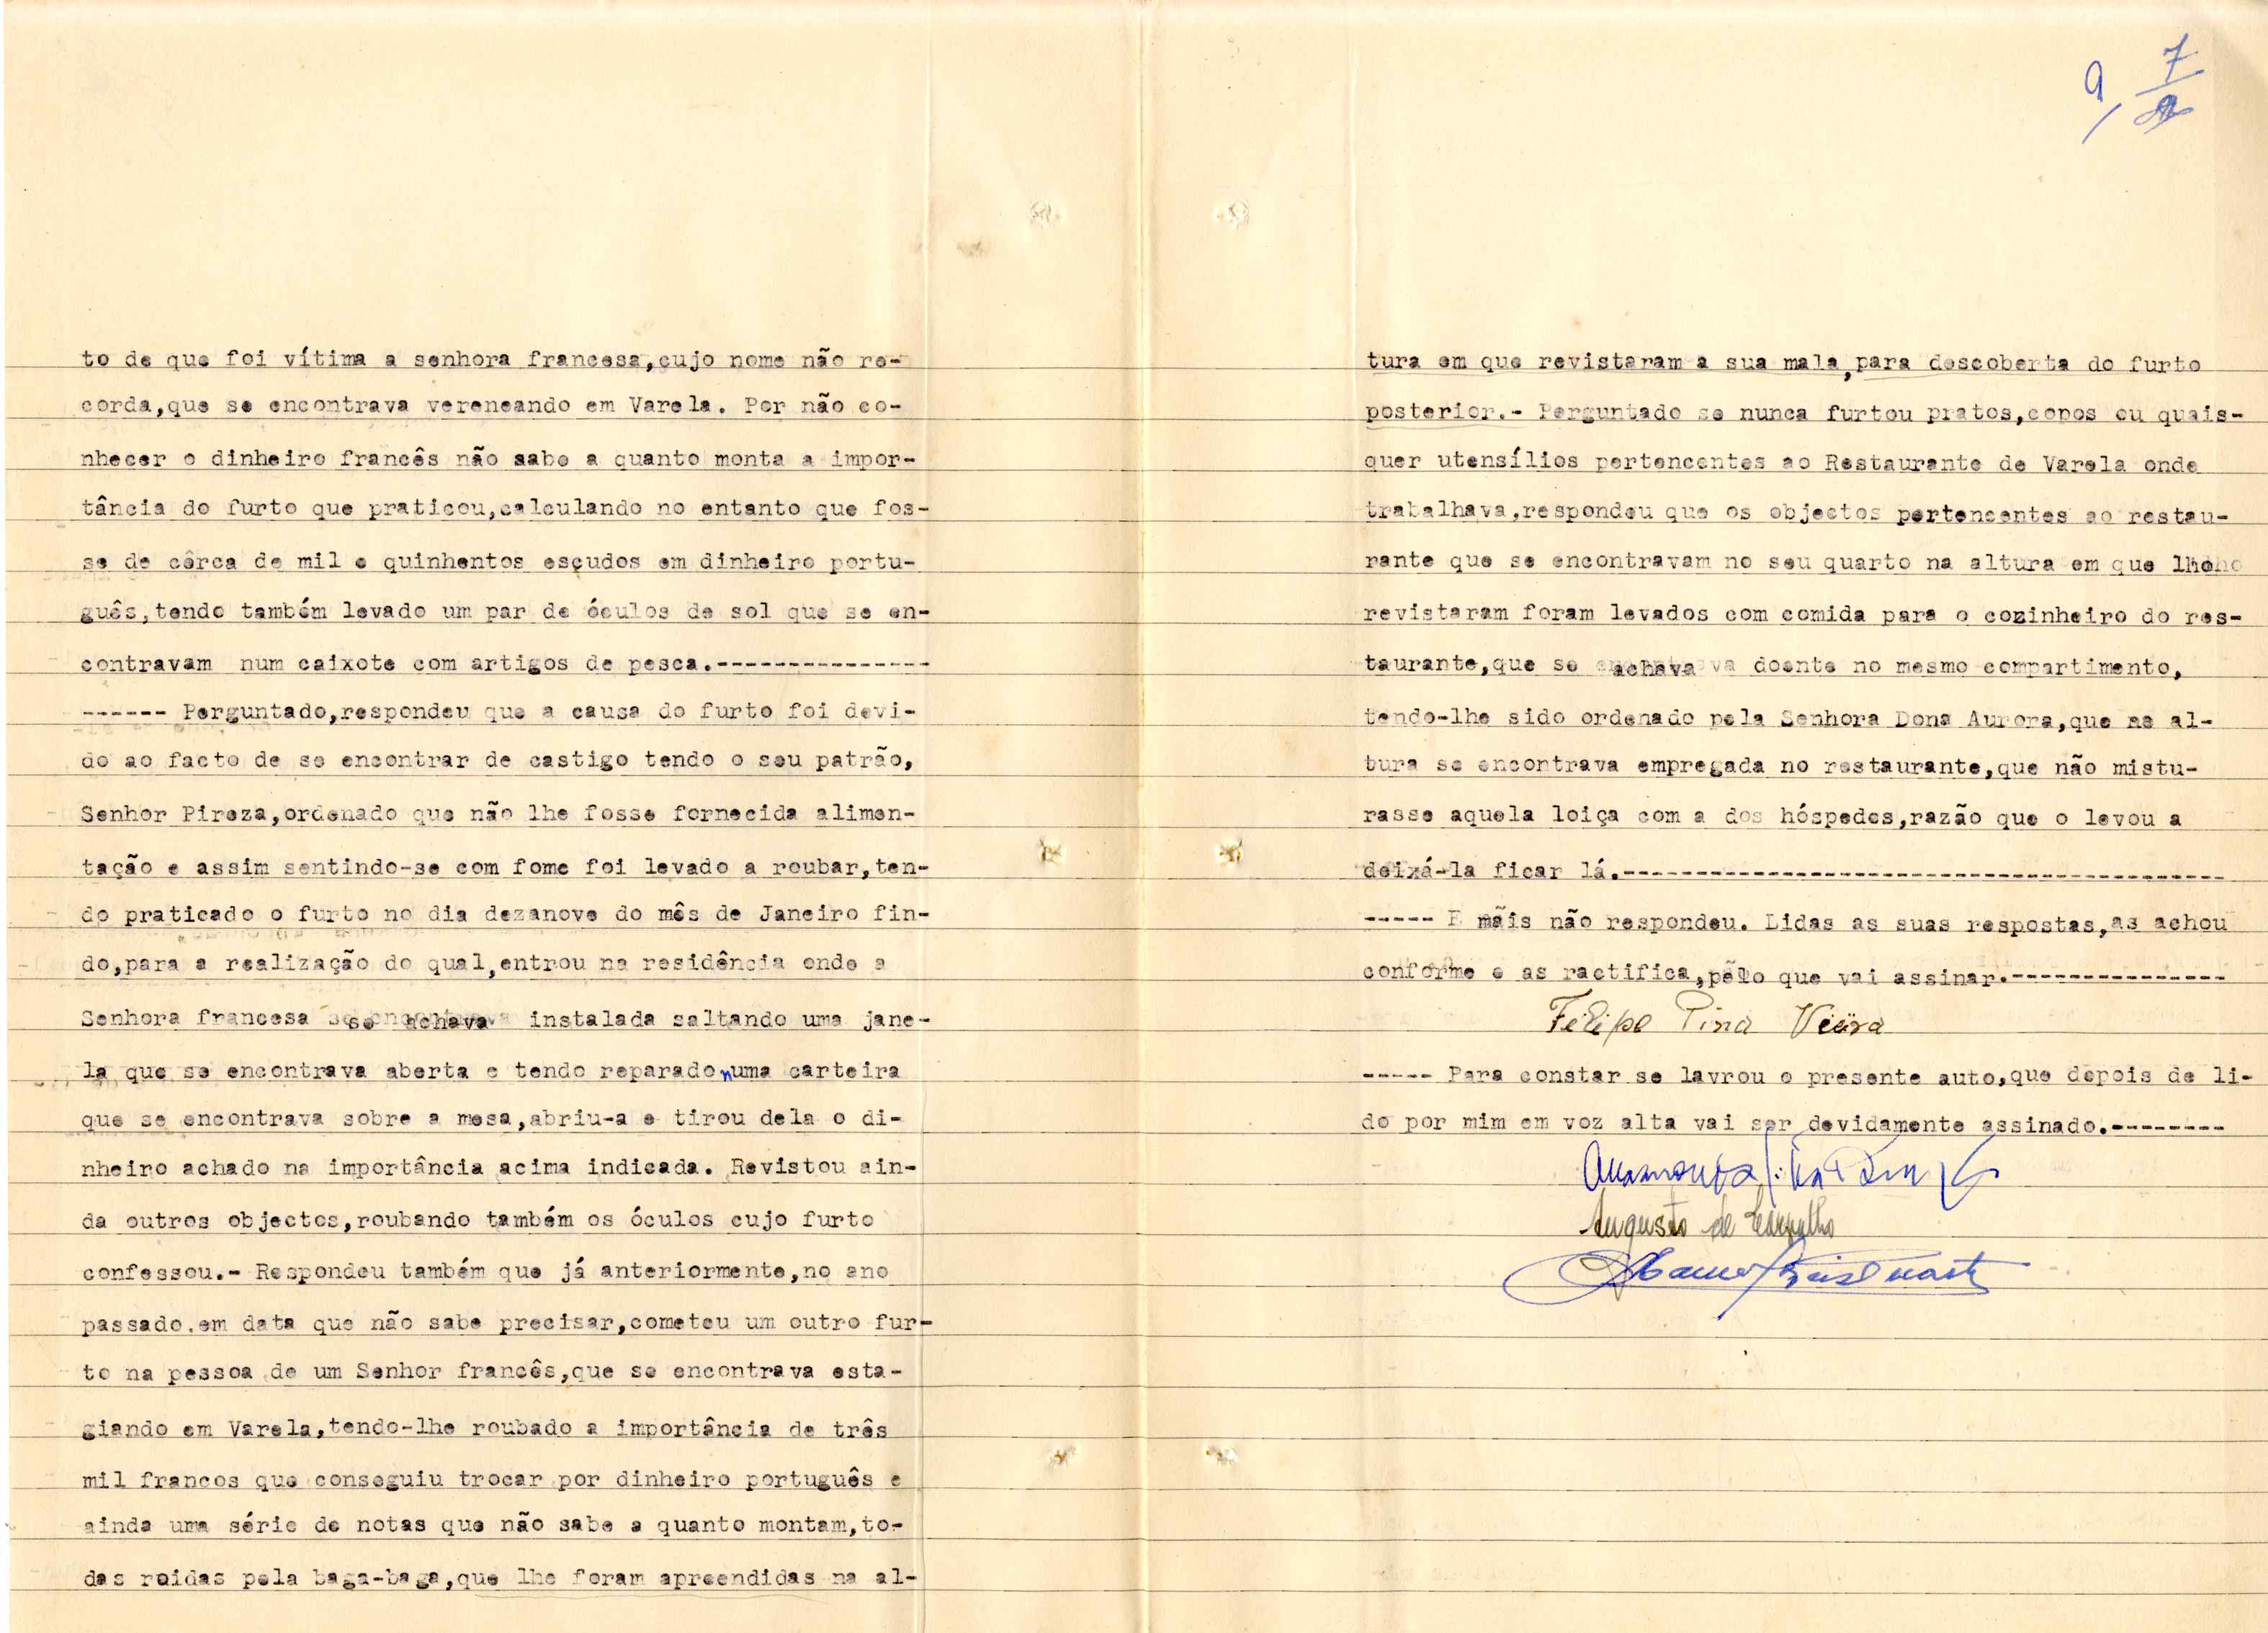 to de que foi vítima a senhora francesa,cujo nome não re-
corda,que se encontrava vereneando em Varela. Por não co-
nhecer o dinheiro francês não sabe a quanto monta a impor-
tância do furto que praticou,calculando no entanto que fos-
se de cêrca de mil e quinhentos escudos em dinheiro portu-
guês,tendo também levado um par de óculos de sol que se en-
contravam num caixote com artigos de pesca.---------------
------ Perguntado,respondeu que a causa do furto foi devi-
do ao facto de se encontrar de castigo tendo o seu patrão,
Senhor Pireza,ordenado que não lhe fosse fornecida alimen-
tação e assim sentindo-se com fome foi levado a roubar,ten-
do praticado o furto no dia dezanove do mês de Janeiro fin-
do,para a realização do qual,entrou na residência onde a
Senhora francesa se achava instalada saltando uma jane-
la que se encontrava aberta e tendo reparado numa carteira
que se encontrava sobre a mesa,abriu-a e tirou dela o di-
nheiro achado na importância acima indicada. Revistou ain-
da outros objectos,roubando também os óculos cujo furto
confessou.- Respondeu também que já anteriormente,no ano
passado,em data que não sabe precisar,cometeu um outro fur-
to na pessoa de um Senhor francês,que se encontrava esta-
giando em Varela,tendo-lhe roubado a importância de três
mil francos que conseguiu trocar por dinheiro português e
ainda uma série de notas que não sabe a quanto montam,to-
das roidas pela baga-baga,que lhe foram apreendidas na al-
7
tura em que revistaram a sua mala,para descoberta do furto
posterior.- Perguntado se nunca furtou pratos,copos ou quais-
quer utensílios pertencentes ao Restaurante de Varela onde
trabalhava,respondeu que os objectos pertencentes ao restau-
rante que se encontravam no seu quarto na altura em que lho
revistaram foram levados com comida para o cozinheiro do res-
taurante,que se achava doente no mesmo compartimento,
tendo-lhe sido ordenado pela Senhora Dona Aurora,que na al-
tura se encontrava empregada no restaurante,que não mistu-
rasse aquela loiça com a dos hóspedes,razão que o levou a
deixá-la ficar lá.------------------------------------------
----- E mãis não respondeu. Lidas as suas respostas,as achou
conforme e as ractifica,pelo que vai assinar.---------------
Felipe Pina Vieira
----- Para constar se lavrou o presente auto,que depois de li-
do por mim em voz alta vai ser devidamente assinado.--------
Augusto de Carvalho